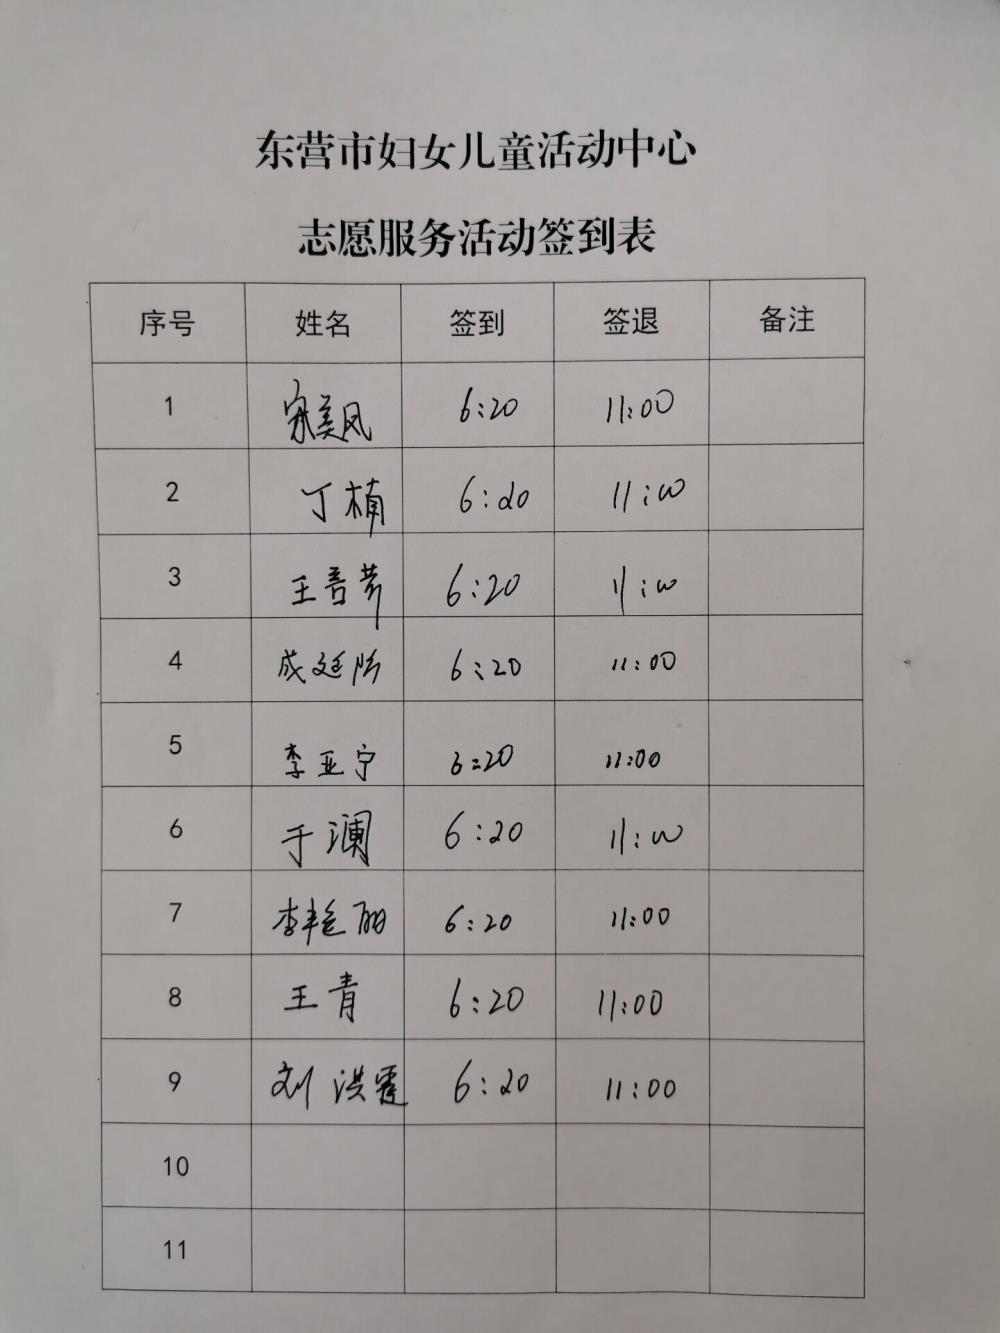 东营市妇女儿童活动中心
志愿服务活动签到表
序号 姓名 签到 签退 备注
1 宋美凤 6:20 11:00
2 丁楠 6:20 11:00
3 王 6:20 11:00
4 成廷 6:20 11:00
5 李亚宁 6:20 11:00
6 于澜 6:20 11:00
7 李艳丽 6:20 11:00
8 王青 6:20 11:00
9 刘洪霞 6:20 11:00
10
11